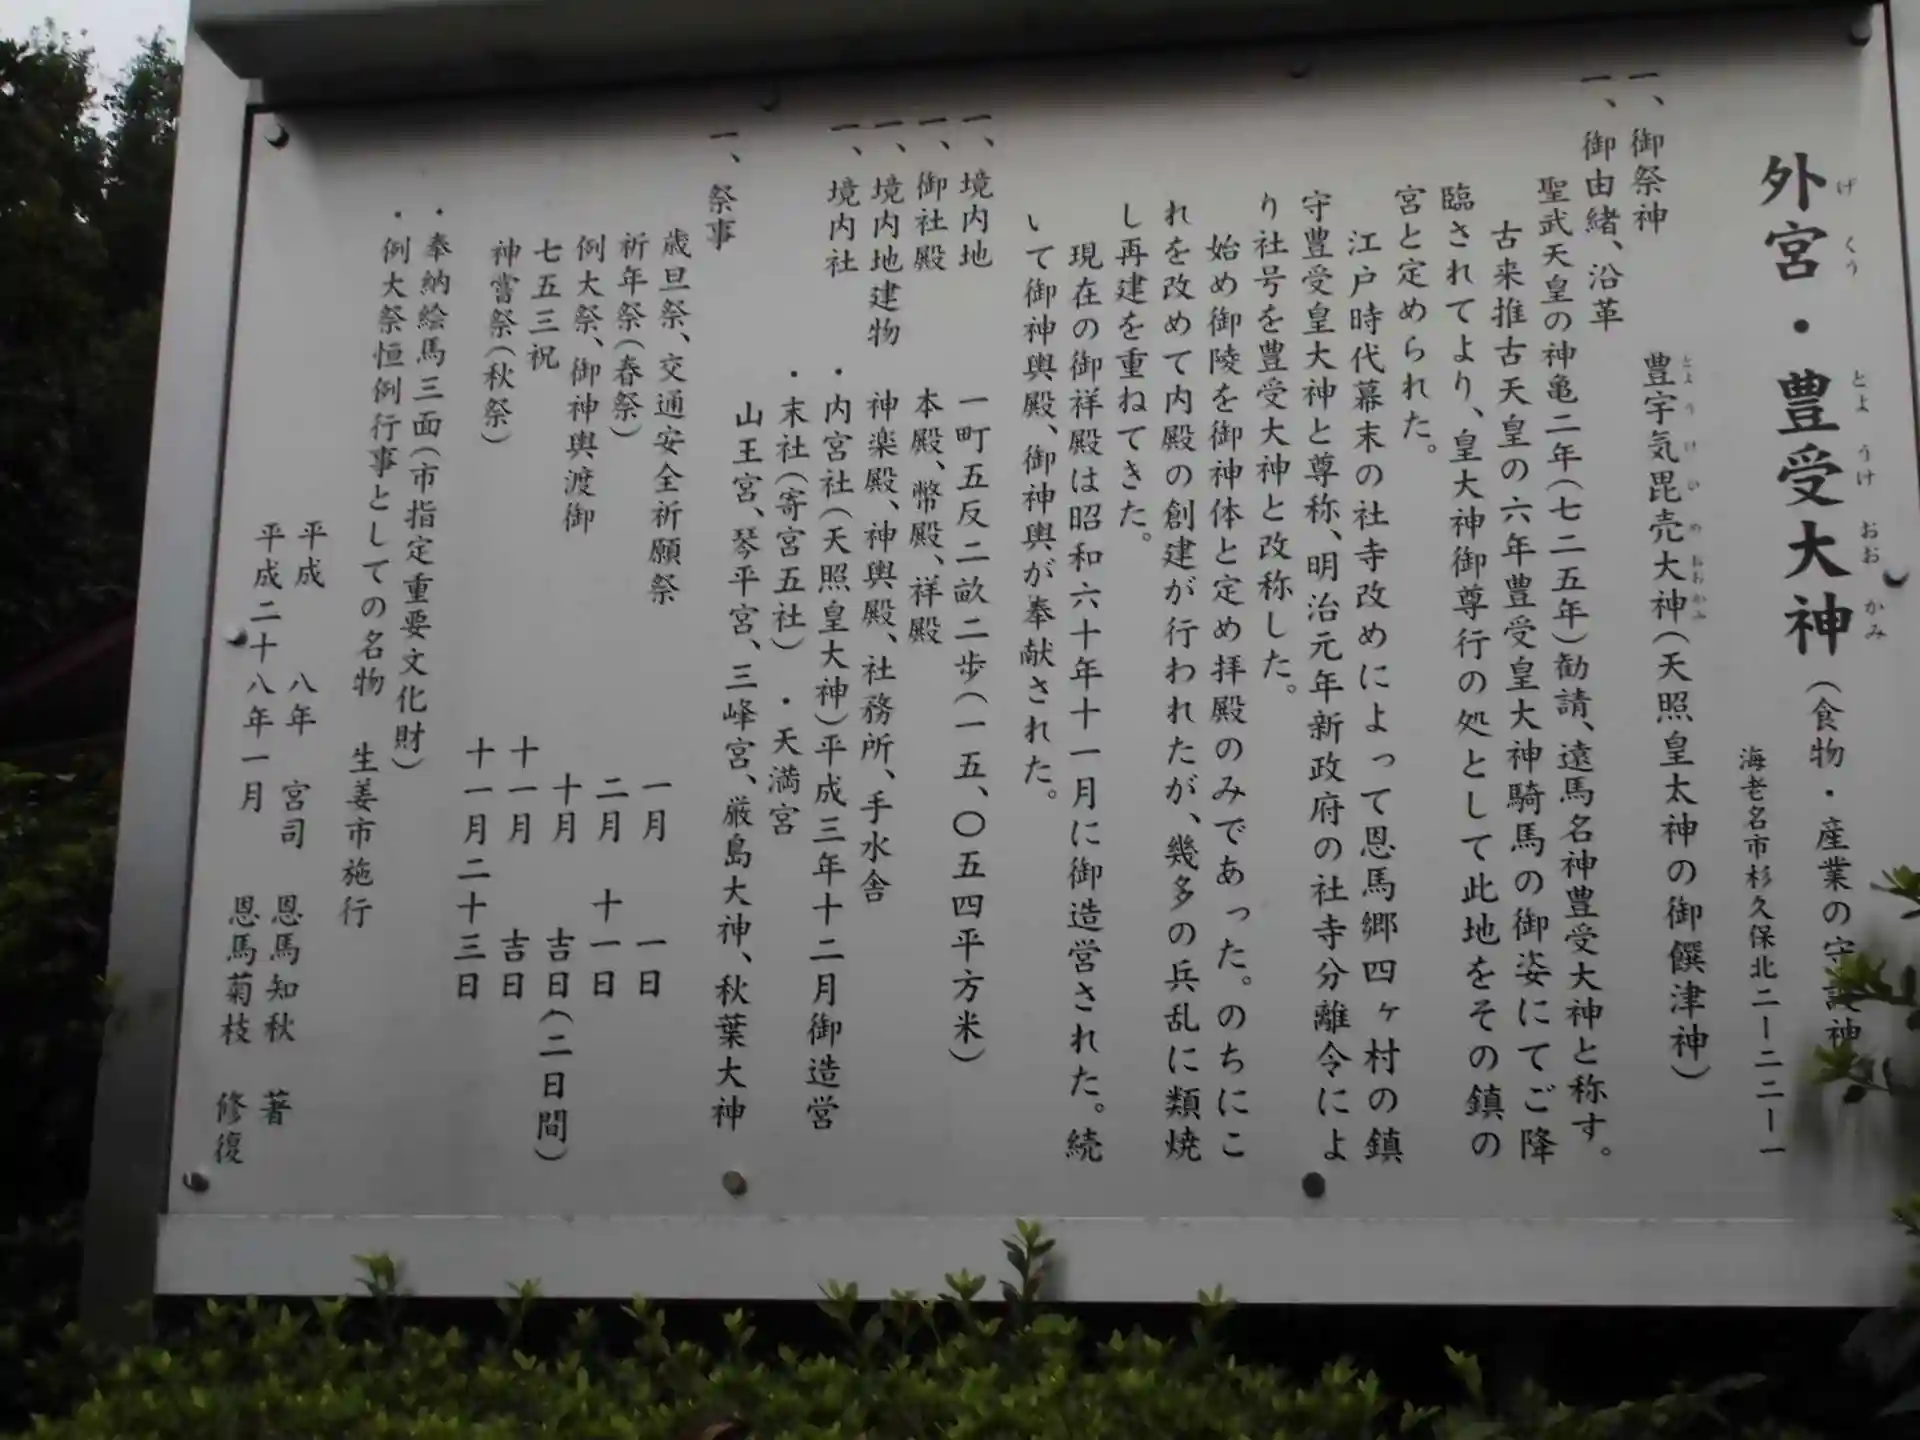 外宮・豊受大神(食物・産業の守護神
げくう とようけおおかみ
海老名市杉久保北二ー二二ー一
一、御祭神 豊宇気毘売大神(天照皇太神の御饌津神)
とようけひめおおかみ
一、御由緒、沿革
聖武天皇の神亀二年(七二五年)勧請、遠馬名神豊受大神と称す。
古来推古天皇の六年豊受皇大神騎馬の御姿にてご降
臨されてより、皇大神御尊行の処として此地をその鎮の
宮と定められた。
江戸時代幕末の社寺改めによって恩馬郷四ヶ村の鎮
守豊受皇大神と尊称、明治元年新政府の社寺分離令によ
り社号を豊受大神と改称した。
始め御陵を御神体と定め拝殿のみであった。のちにこ
れを改めて内殿の創建が行われたが、幾多の兵乱に類焼
し再建を重ねてきた。
現在の御祥殿は昭和六十年十一月に御造営された。続
いて御神輿殿、御神輿が奉献された。
一、境内地 一町五反二畝二歩(一五、〇五四平方米)
一、御社殿 本殿、幣殿、祥殿
一、境内地建物 神楽殿、神輿殿、社務所、手水舎
一、境内社 ・内宮社(天照皇大神)平成三年十二月御造営
・末社(寄宮五社) ・天満宮
山王宮、琴平宮、三峰宮、厳島大神、秋葉大神
一、祭事
歳旦祭、交通安全祈願祭 一月 一日
祈年祭(春祭) 二月 十一日
例大祭、御神輿渡御 十月 吉日(二日間)
七五三祝 十一月 吉日
神嘗祭(秋祭) 十一月二十三日
・奉納絵馬三面(市指定重要文化財)
・例大祭恒例行事としての名物 生姜市施行
平成 八年 宮司 恩馬知秋 著
平成二十八年一月 恩馬菊枝 修復